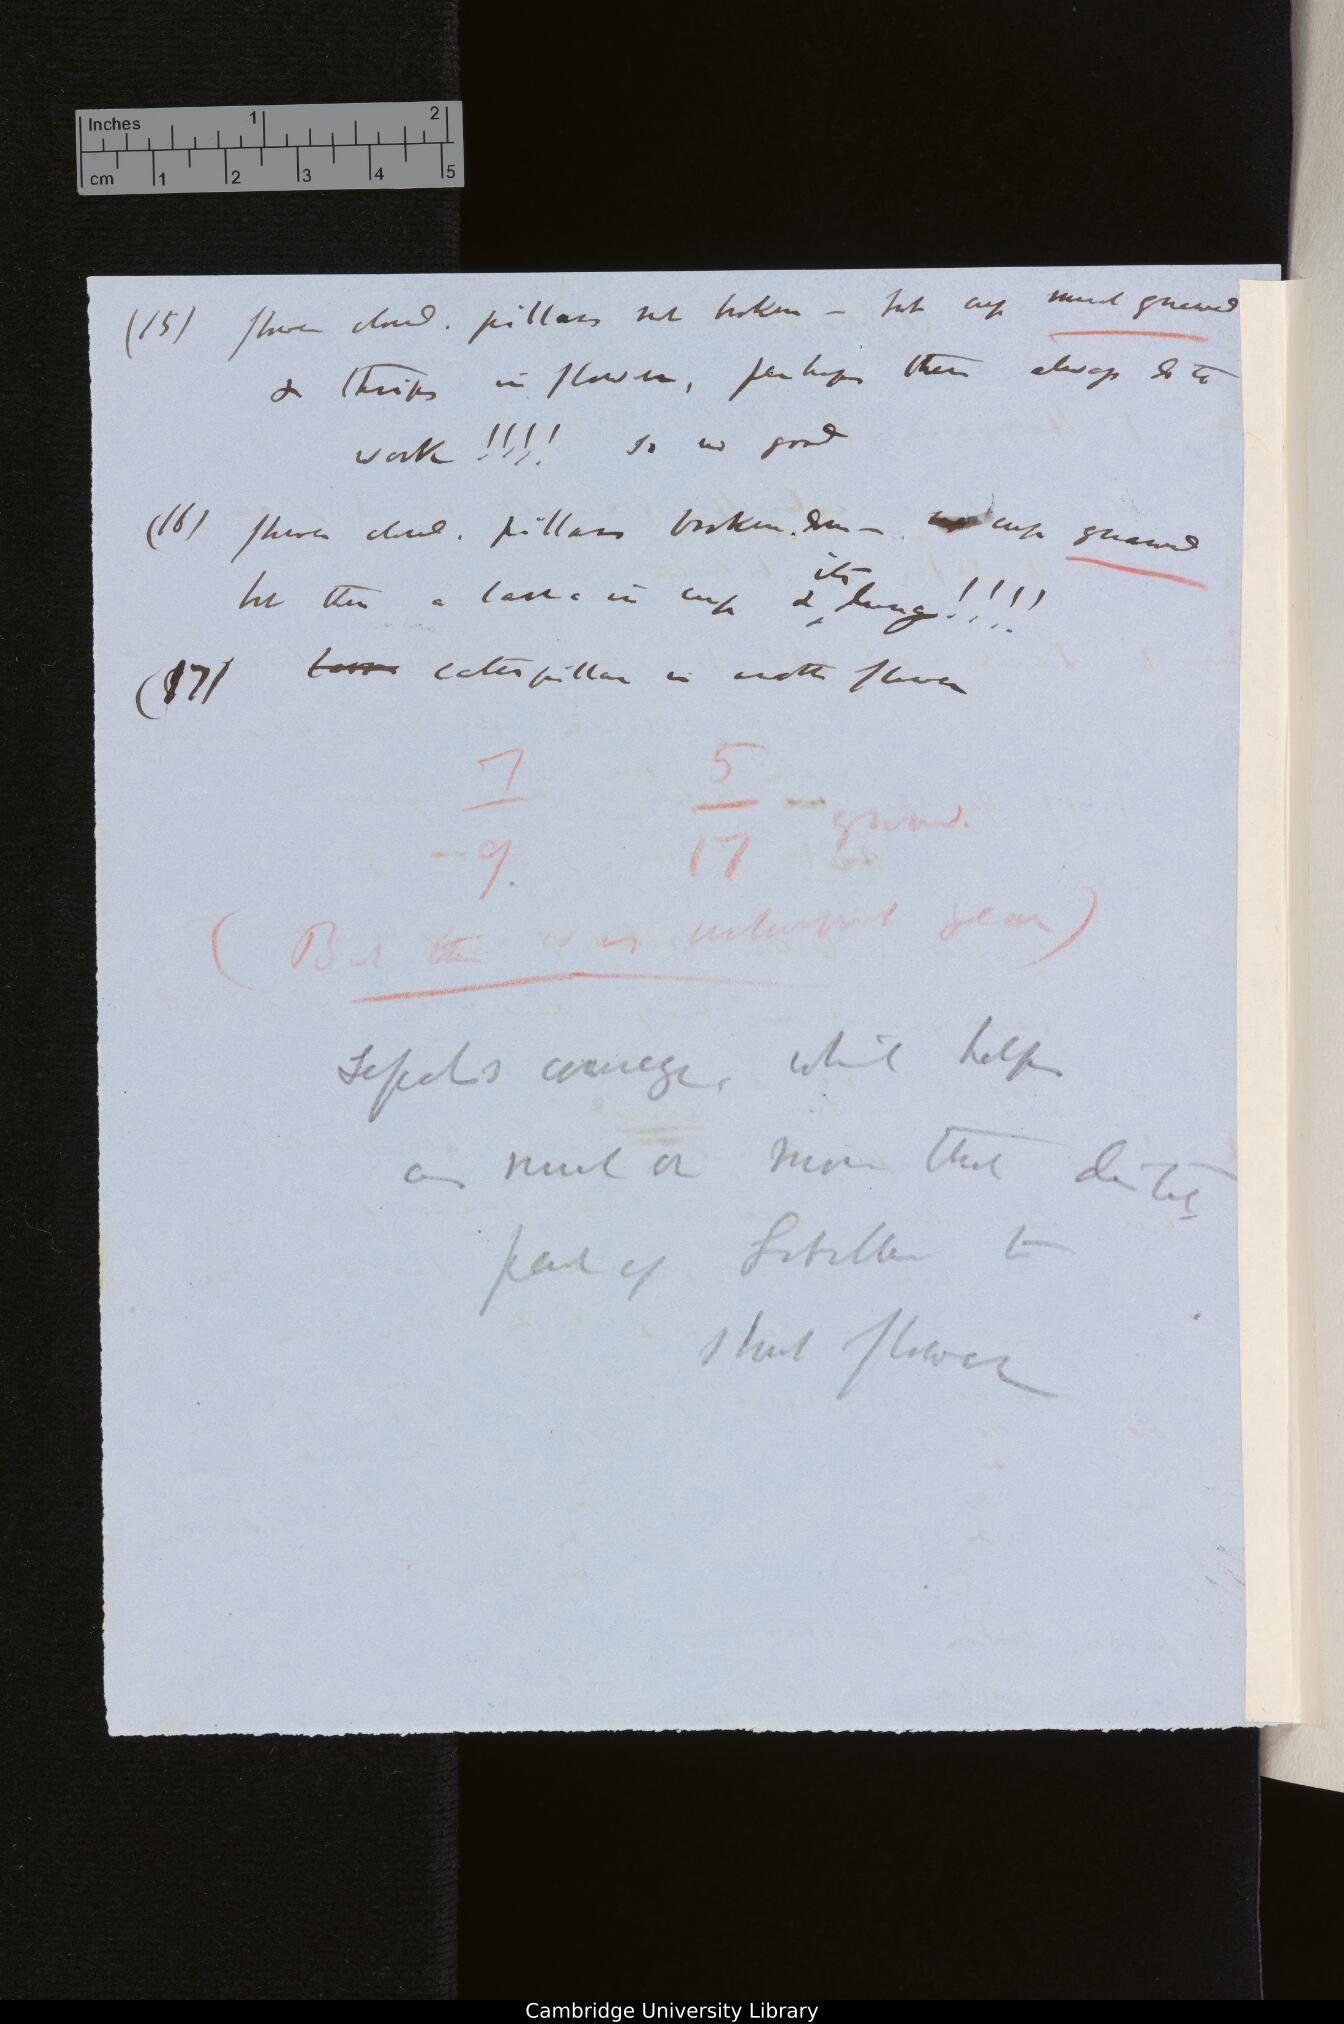 Inches 1 2
cm 1 2 3 4 5
(15) flower closed. pillars not broken — but cup much gnawed
& thrips in flower, perhaps these always do the
work !!!! so no good
(16) flower closed. pillars broken down — cup gnawed
but there a larva in cup & its dung !!!!
(17) larva caterpillar in another flower
7 5
9. 17 gnawed.
(But this was year)
Sepals converge, which helps
as much or more that
part of Labellum to
shut flower
Cambridge University Library